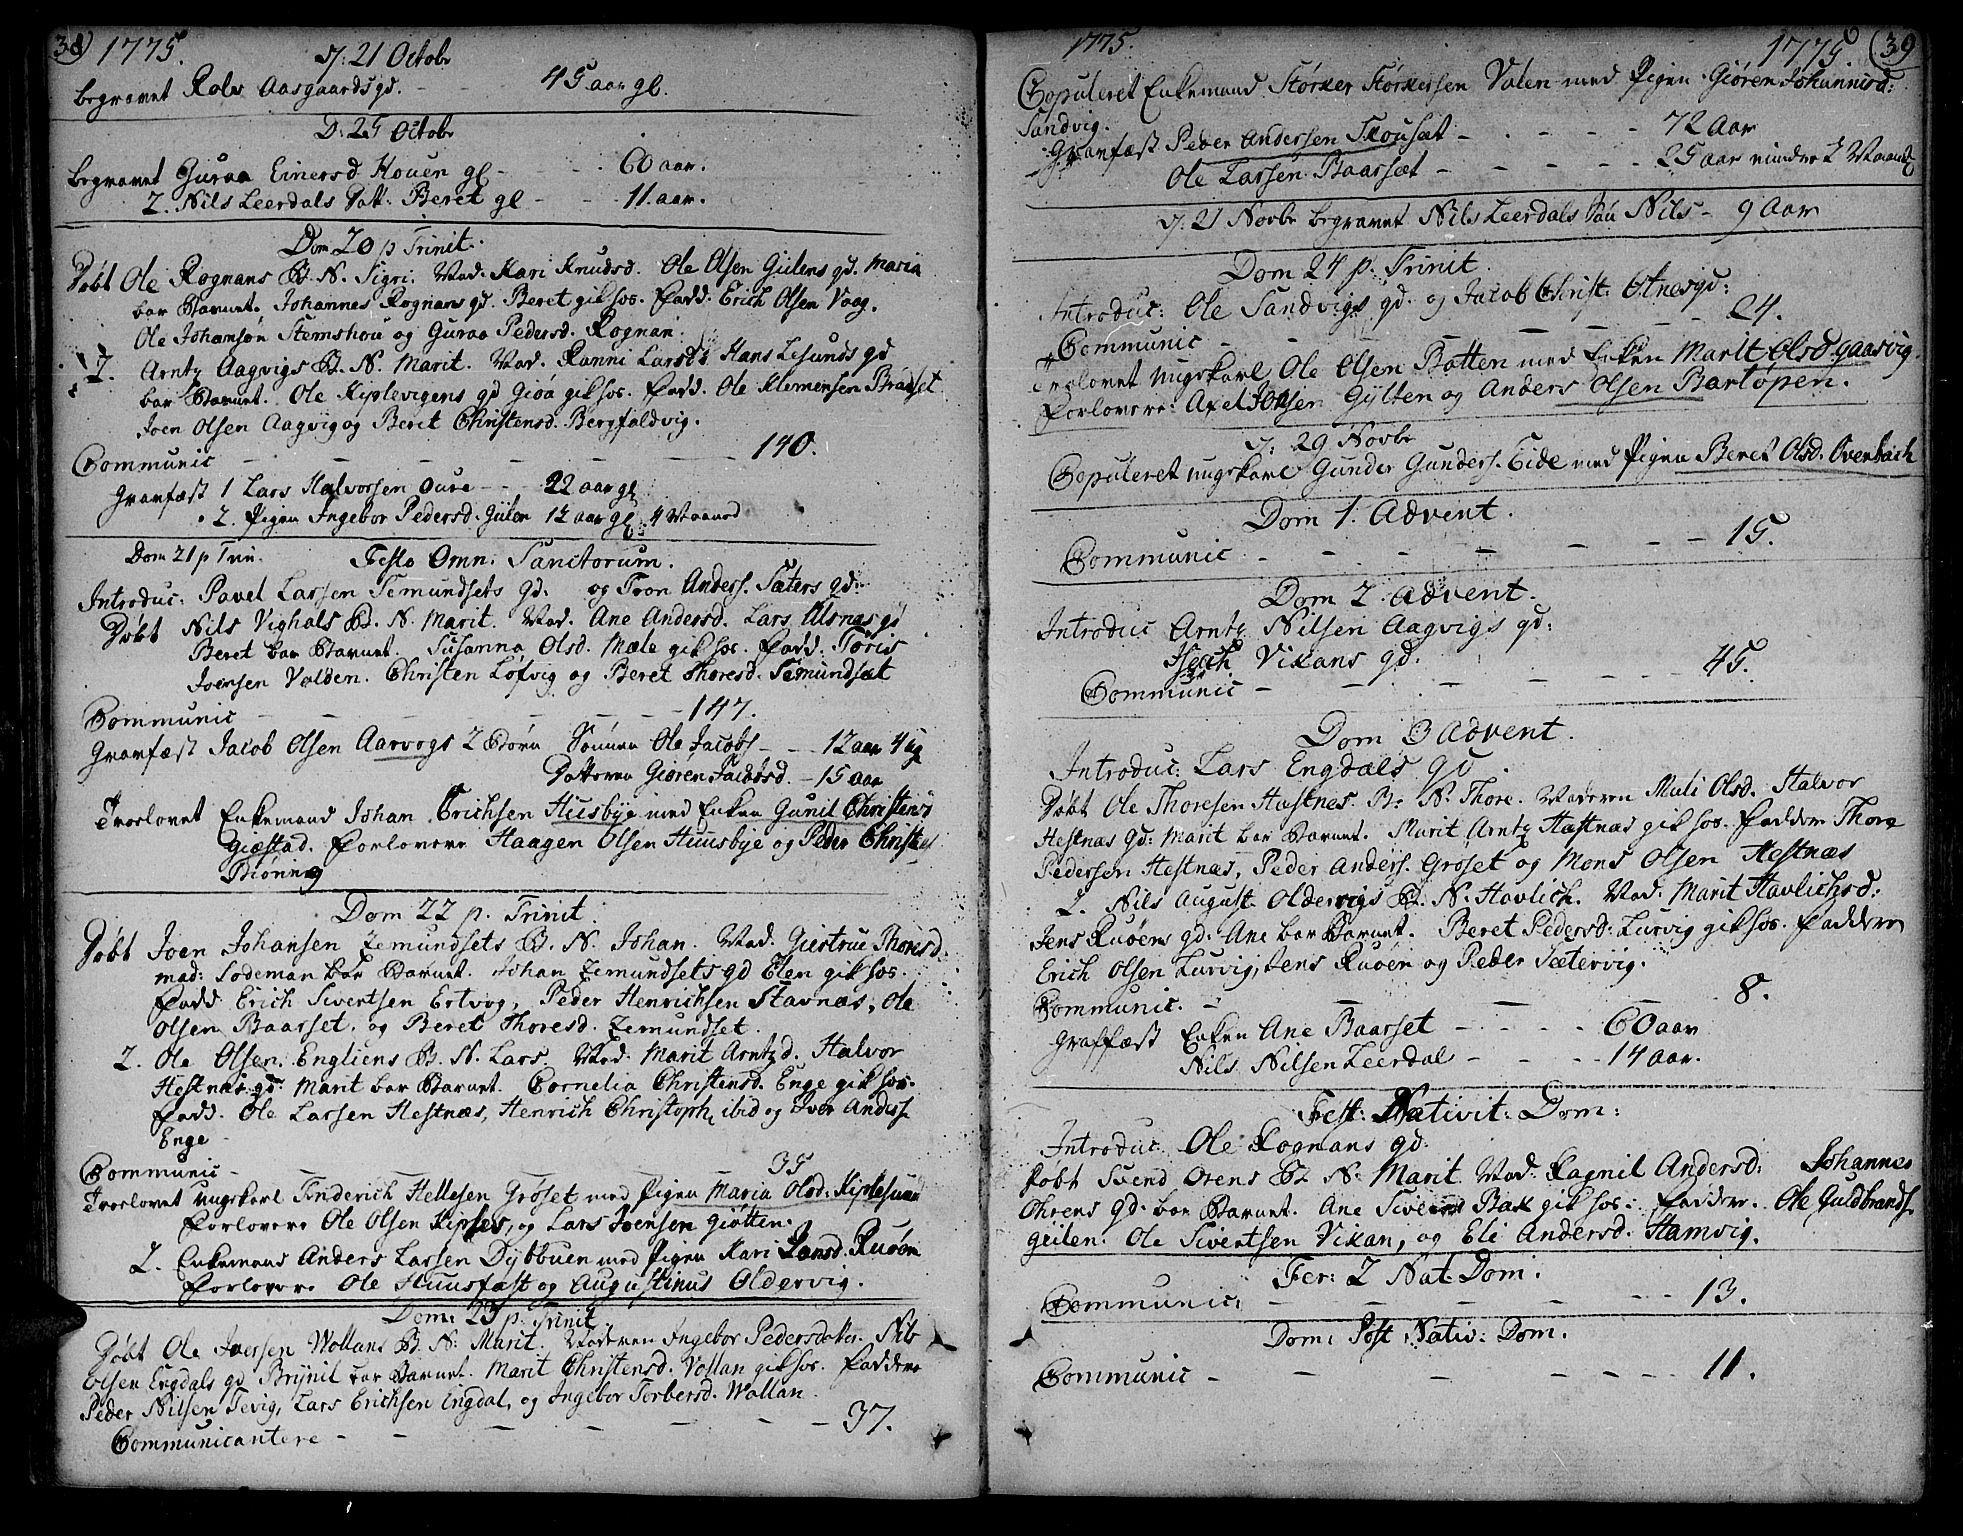 38) 1775.
D: 21 Octobr
begravet Rolv Aasgaards gd. - 45 aar gl.
D: 25 Octobr
begravet Guraa Einersd Houen gl - - 60 aar.
2. Nils Leerdals Datt: Beret gl - - 11 aar.
Dom 20 p Trinit.
Døbt Ole Rognans B. N. Sigri. Mod. Kari Knudsd. Ole Olsen Giilens gd. Maria
bar Barnet. Johannes Rognans gd. Beret gik hos. Fadd. Erich Olsen Vaag.
Ole Johansøn Stemshou og Guraa Pedersd. Rognan.
2. Arntz Aagvigs B. N. Marit. Mod. Ranni Larsd. Hans Lesunds gd
bar Barnet. Ole Kiplevigens gd Gioa gik hos. Fadd. Ole Klemensen
Joen Olsen Aagvig og Beret Christensd. Bergfaldvig.
Communic - - - - - - 140.
Gravfæst 1 Lars Halvorsen Oure - - 22 aar gl
2. Pigen Ingebor Pedersd. Giilen 12 aar gl. 4 Maaned
Dom 21 p Trin. Festo Omn: Sanctorum.
Introduc: Pavel Larsen Semundsets gd: og Tron Anders. Sæters gd:
Døbt Nils Vighals B. N. Marit. Mod. Ane Andersd. Lars Alsnæs gd
Beret bar Barnet. Susanna Olsd. Mæle gik hos. Fadd: Toris
Joensen Volden. Christen Lofvig og Beret Thoresd. Semundsæt
Communic - - - - - - 147.
Gravfæst Jacob Olsen Aarvogs 2 Børn Sønnen Ole Jacobs - - 12 aar 4 ug
Datteren Giøren Jacobsd. - 15 aar
Trolovet Enkemand Johan Erichsen Huusbye med Enken Gunil Christens
Giæstad. Forlovere Haagen Olsen Huusbye og Peder Christens
Biørning
Dom 22 p. Trinit.
Døbt Joen Johansen Zemundsets B. N. Johan. Mod. Giertrue Thoresd.
mad: Sodeman bar Barnet. Johan Zemundsets gd Elen gik hos.
Fadd Erich Sivertsen Ertvog, Peder Henrichsen Stavnæs, Ole
Olsen Baarset. og Beret Thoresd. Zemundset.
2. Ole Olsen Engliens B. N. Lars. Mod. Marit Arntzd. Halvor
Hestnæs gd: Marit bar Barnet. Cornelia Christensd. Enge gik hos.
Fadd. Ole Larsen Hestnæs, Henrich Christoph, ibid og Iver Anders.
Enge
Communic - 35
Trolovet ungkarl Friderich Hellesen Grøset med Pigen Maria Olsd: Kiplesund
Forlovere Ole Olsen Kiplses, og Lars Joensen Giøtten.
2. Enkemand Anders Larsen Dybbuen med Pigen Kari Jansd. Ruøen
Forlovere Ole Huusfast og Augustinus Oldervig.
Dom: 23 p. Trinit
Døbt Ole Iversen Wollans B. N: Marit. Moderen Ingebor Pedersdater. Nils
Olsen Engdals gd Brynil bar Barnet. Marit Christensd. Vollan gik hos. Faddere
Peder Nilsen Tevig, Lars Erichsen Engdal, og Ingebor Torbersd. Wollan.
Communicantere - - - - - 37.
1775. 1775 (39
Copuleret Enkemand Størker Størkersen Valen med Pigen Giøren Johannisd:
Sandvig.
Gravfæst Peder Andersen Skouset - - - - 72 Aar
Ole Larsen Baarsæt - - - - 25 aar minder 2 Maand
D: 21 Novbr begravet Nils Leerdals Søn Nils - 9 Aar
Dom 24 p. Trinit.
Introduc: Ole Sandvigs gd. og Jacob Christ: Otnes gd:
Communic - - - - - 24.
Trolovet ungkarl Ole Olsen Botten med Enken Marit Olsd. Gaasvig.
Forlovere: Axel Jonsen Gylten og Anders Olsen Bartøpen.
D: 29 Novbr
Copuleret ungkarl Gunder Gunders. Eide med Pigen Beret Olsd. Overbach
Dom 1. Advent.
Communic - - - - - - 15.
Dom 2. Advent.
Introduc Arntz Nilsen Aagvigs gd:
Isach Vikans gd.
Communic - - - - - 45.
Dom 3 Advent.
Introduc: Lars Engdals gd
Døbt Ole Thoresen Hæstnes. B: N: Thore. Moderen Mali Olsd. Halvor
Hestnæs gd: Marit bar Barnet. Marit Arntz Hæstnæs gik hos. Faddere Thore
Pedersen Hestnæs, Peder Anders. Grøset og Mons Olsen Hestnæs
2. Nils August Oldervigs B. N. Havlich. Mod. Marit Havlichsd:
Jens Ruøens gd. Ane bar Barnet. Beret Pedersd: Lurvig gik hos. Faddere
Erich Olsen Lurvig, Jens Ruøen og Peder Sætervig.
Communic. - - - - 8.
Graffæst Enken Ane Baarset - - - - 60 aar
Nils Nilsen Leerdal - - - - 14 aar.
Fest: Nativit: Dom:
Introduc Ole Rognans gd.
Døbt Svend Orens B. N: Marit. Mod. Ragnil Andersd: Johannes
Ohrens gd. bar Barnet. Ane Sivers Bak gik hos: Faddere. Ole Guldbrands.
Geilen. Ole Sivertsen Vikan, og Eli Andersd. Hamvig.
Fer: 2 Nat: Dom:
Communic: - - - - - 13.
Dom: Post Nativ: Dom.
Communic - - - - - 11.